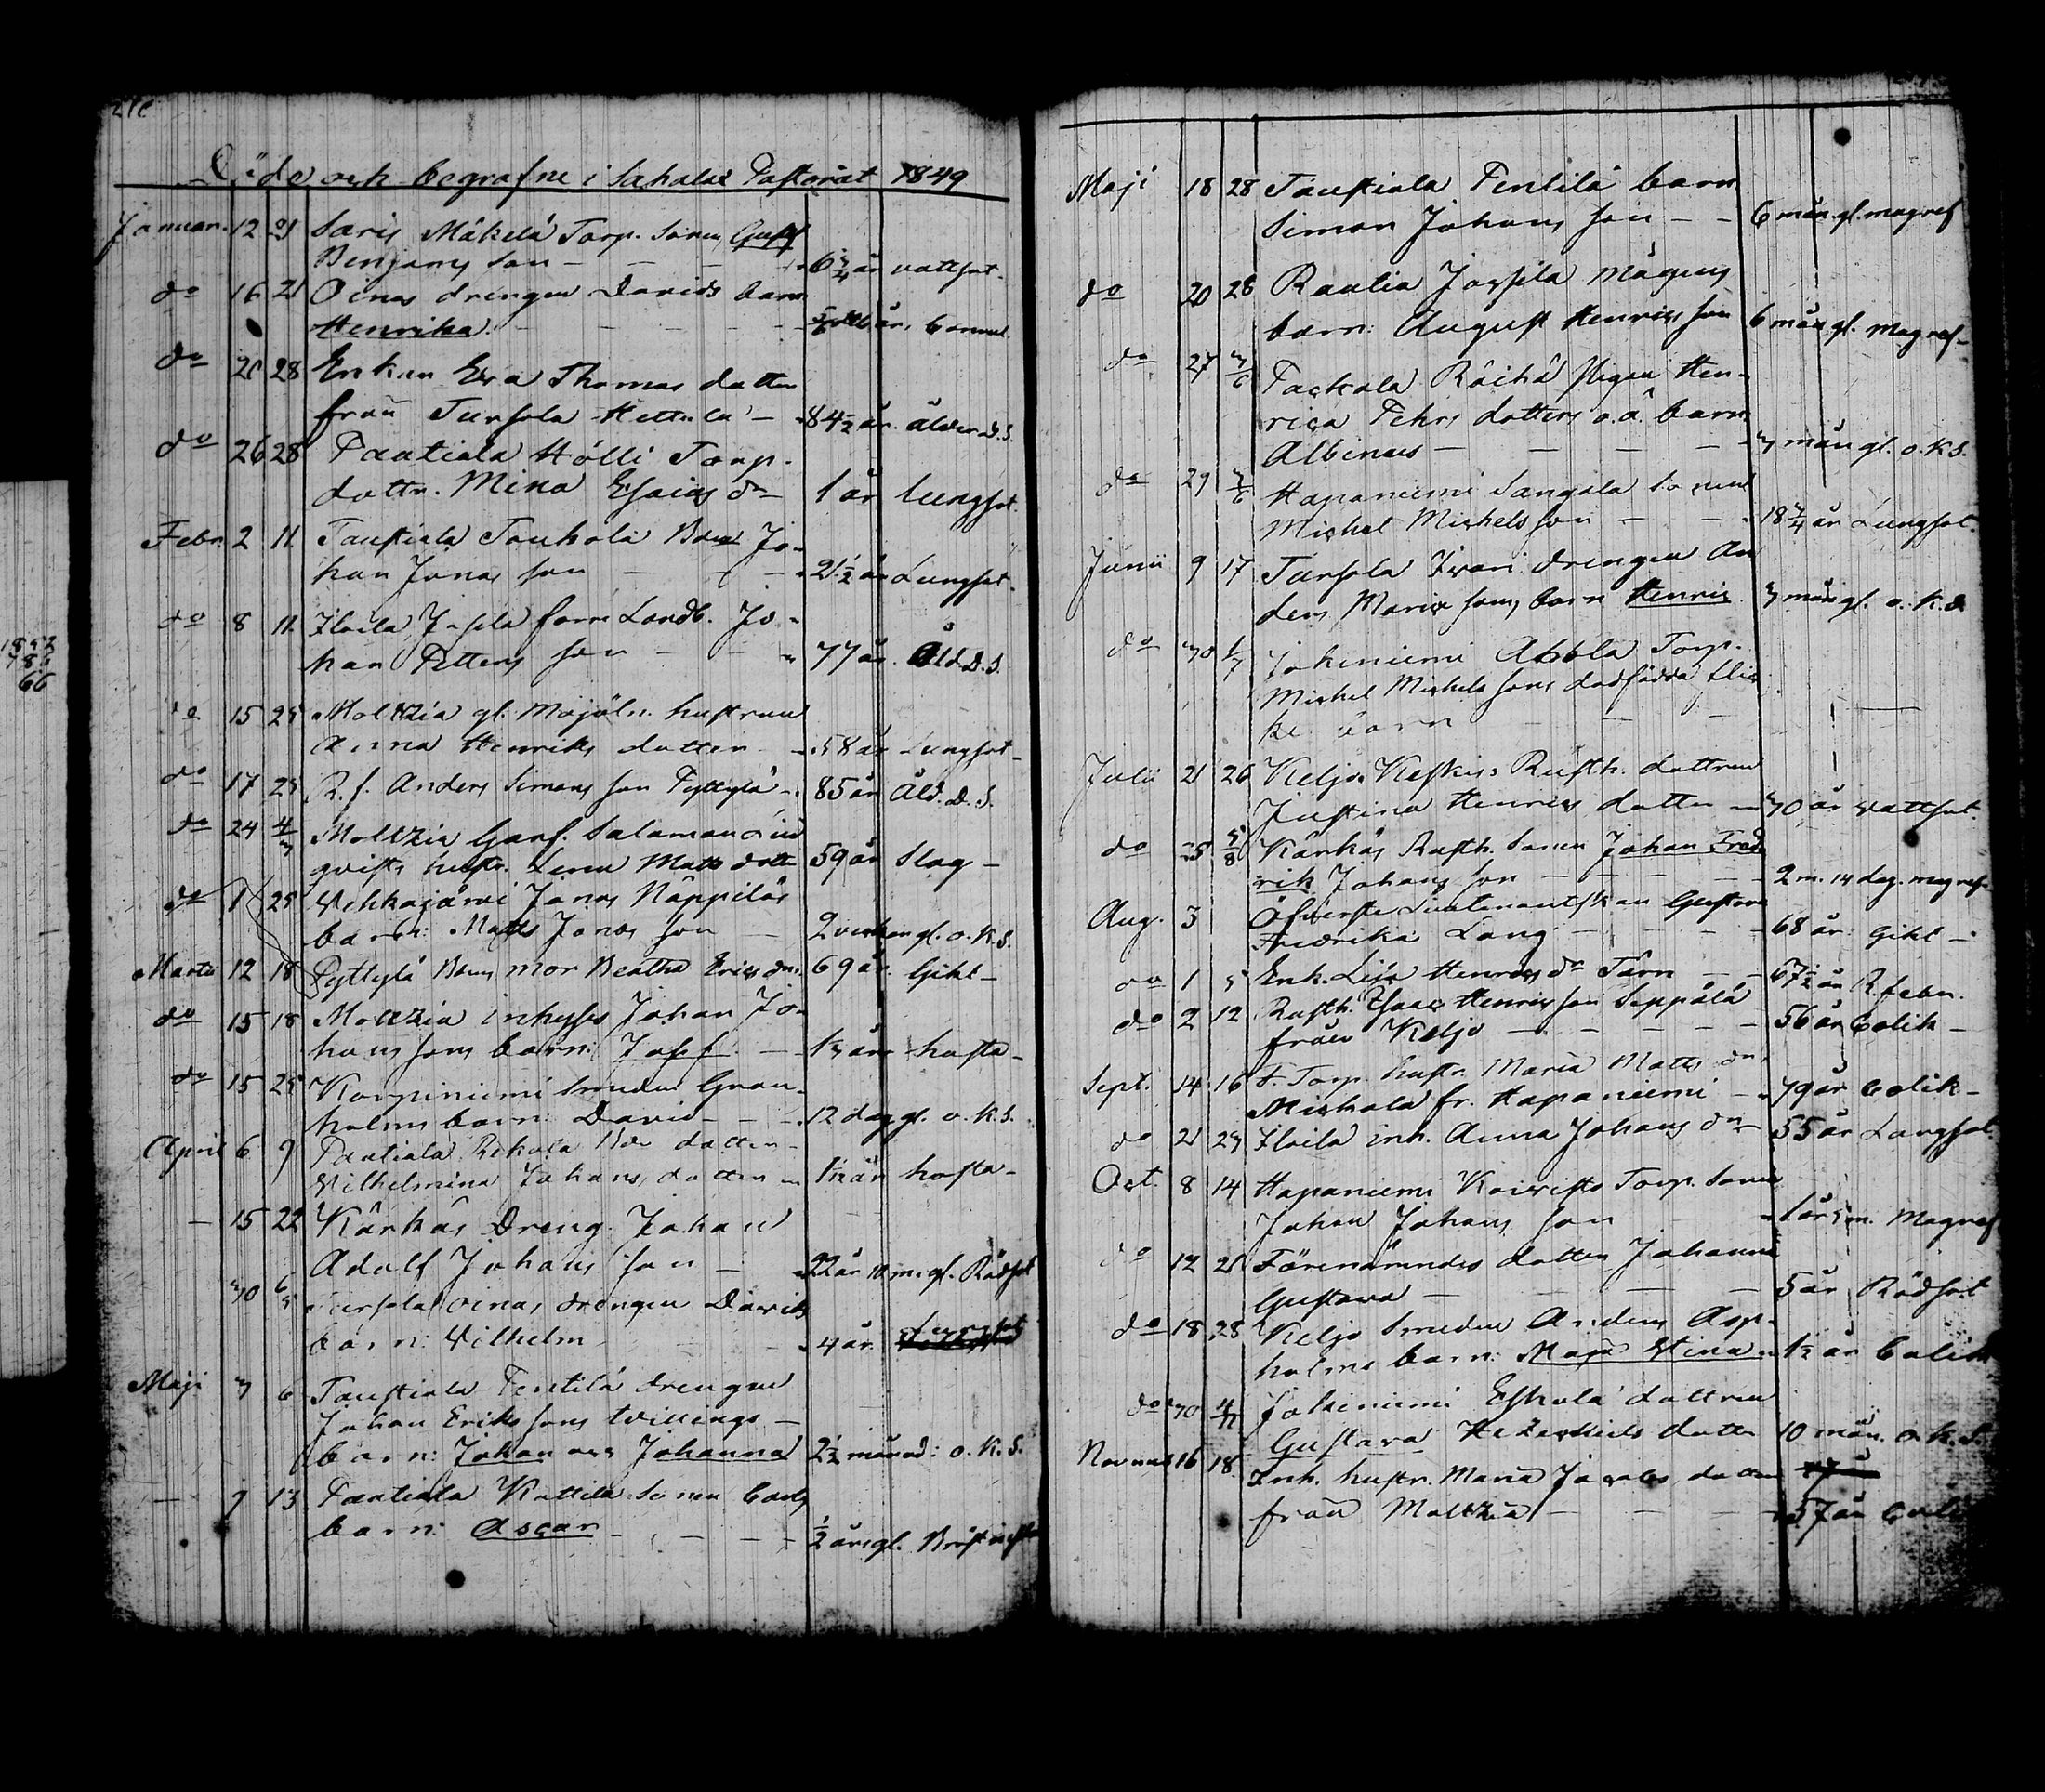 Döde och begrafne i Sahalax Pastorat 1849
Januari 12 21 Saris Mäkelä Torp. Sonen Gustf
Benjams son — 6 3/4 år vattsot.
do 16 21 Oinas drengen Davids barn
Henrika. — år,
do 20 28 Enkan Eva Thomas dotter
från Tursola Hettula — 84 1/2 år. ålder. d. S.
do 26 28 Pautiala Hölli Torp.
dottr. Mina Esaias dr 1 år lungsot.
Febr. 2 11 Taustiala Touhola Bond Jo-
han Jonas son — 21 1/2 år Lungsot.
do 8 11 Iloila Jussila forne Landb. Jo-
han Petters son — 77 år. Åld. D. S.
do 15 25 Moltzia gl. Mojöln. hustrun
Anna Henriks dotter — 58 år Lungsot
do 17 25 R. f. Anders Simons son Pyttylä — 85 år Åld. D. S.
do 24 4/3 Moltzia Garf. Salamon Lind
qvists hustr. Lena Matts dotter 59 år Slag —
do 1 25 Vehkajärvi Jonas Näppiläs
barn: Matts Jonas son — 2 veckor gl. o. K. S.
Martii 12 18 Pyttylä Bdns mor Beatha Erics dr. 69 år. Gikt —
do 15 18 Moltzia inhyses Johan Jo-
hans sons barn: Josef — 1 1/3 år hosta —
do 15 25 Korpiniemi Smeden Gran-
holms barn: David — 12 dag gl. o. K. S.
April 6 9 Pautiala Rekola Bde dotter
Vilhelmina Johans dotter — 1 1/2 år hosta —
— 15 22 Kärkäs Dreng. Johan
Adolf Johans son — 22 år 10 m. gl. Rödsot
30 6/5 Tursola Oinas drengen Davids
barn: Vilhelm — 4 år Lungsot
Maji 3 6 Taustiala Pentilä drengen
Johan Eriks sons tvillings —
barn: Johan och Johanna 2 1/2 månad: o. K. S.
— 7 13 Pautiala Kattila Sonen Carls
barn: Oscar — 1/2 års gl. Bröst
Maji 18 28 Taustiala Pentilä barn
Simon Johans son — 6 mån. gl. magref
do 20 28 Rautia Jossila mågens
barn: August Henrics son 6 mån gl. Magref —
do 27 3/6 Packola Räihä Pigan Hen-
rica Pehrs dotters o.ä. barn
Albinus — 3 mån gl. o. K. S.
do 29 3/6 Haponiemi Sangola Sonen
Michel Michels son — 18 3/4 år Lungsot.
Junii 9 17 Tursola Iivari drengen An
ders Mariæ sons barn Henric 3 mån gl. o. K. S.
do 30 1/7 Jokiniemi Abbla Torp.
Michel Michels sons dödfödda flic
ke barn — —
Julii 21 26 Keljo Keskis Rusth. dottren
Justina Henrics dotter — 30 år Vattsot.
do 25 5/8 Kärkäs Rusth. Sonen Johan Fred
rik Johans son — 2 m. 14 dag. magref.
Aug. 3 Öfverste Lieutenantskan Gustava
Fredrika Lang — 68 år: Gikt —
do 1 5 Enk. Lisa Henrics dr Törn — 67 1/2 år R. feber.
do 2 12 Rusth. Isaac Henrics son Seppälä
från Keljo — 56 år Colik —
Sept. 14 16 F. Torp. hustr. Maria Matts dr.
Mickola fr. Haponiemi — 79 år Colik —
do 21 23 Iloila inh. Anna Johans dr 55 år Lungsot.
Oct. 8 14 Haponiemi Koivisto Torp. Sonen
Johan Johans son — 1 år m. Magref
do 12 21 Förenämndes dotter Johanna
Gustava — 5 år Rödsot
do 18 28 Keljo Smeden Anders Asp-
holms barn: Maja Stina — 1 1/2 år Colik
do 30 4/11 Jokiniemi Eskola dottren
Gustava Hezekiels dotter 10 mån. o. K. S.
Novemb 16 18 Inh. hustr. Maria Jacobs dotter
från Moltzia — 57 år Colik